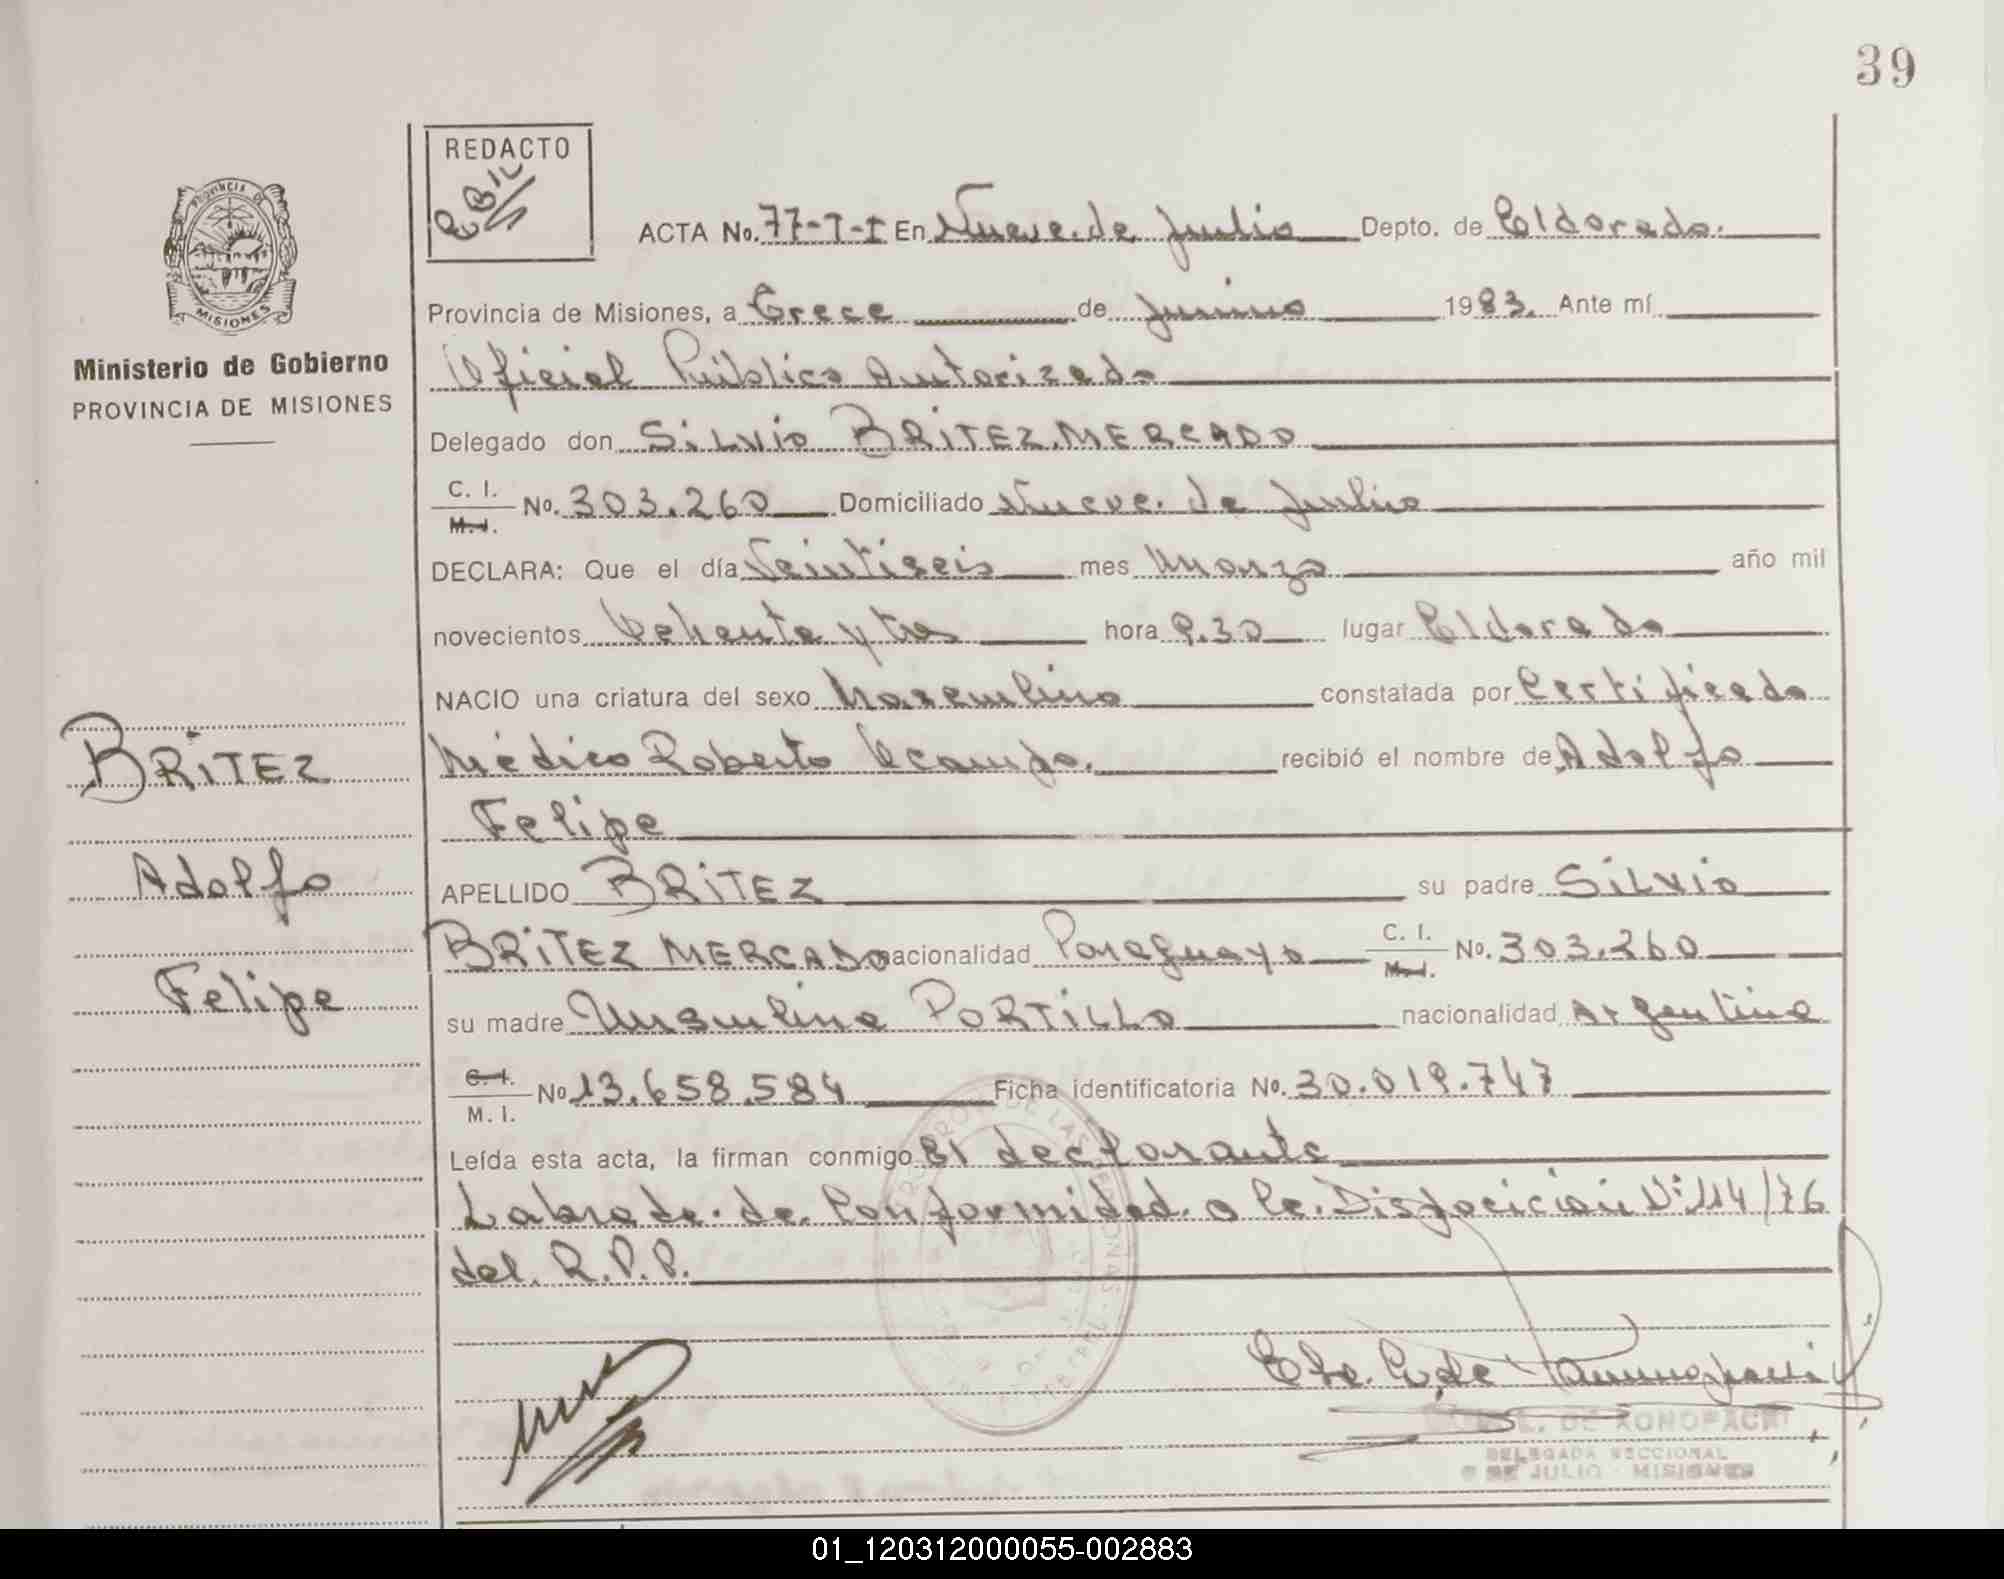 39
REDACTO
PROVINCIA DE
MISIONES
Ministerio de Gobierno
PROVINCIA DE MISIONES
ACTA No. 77-T-I En Nueve de Julio Depto. de Eldorado.
Provincia de Misiones, a Trece de junio 1983. Ante mí
Oficial Público Autorizado
Delegado don Silvio BRITEZ MERCADO
C. I.
M. I. No. 303.260 Domiciliado Nueve de Julio
DECLARA: Que el día Veintiseis mes Marzo año mil
novecientos Ochenta y tres hora 9.30 lugar Eldorado
NACIO una criatura del sexo Masculino constatada por Certificado
Médico Roberto Ocampo. recibió el nombre de Adolfo
Felipe
APELLIDO BRITEZ su padre SILVIO
BRITEZ MERCADO nacionalidad Paraguayo C. I.
M. I. No. 303.260
su madre Ursulina PORTILLO nacionalidad Argentina
C. I.
M. I. No 13.658.584 Ficha identificatoria No. 30.019.747
Leída esta acta, la firman conmigo El declarante
Labrada de Conformidad a la Disposición Nº 114/76
del R.P.P.
BRITEZ
Adolfo
Felipe
DE KONOPACKI
DELEGADA SECCIONAL
9 DE JULIO - MISIONES
01_120312000055-002883